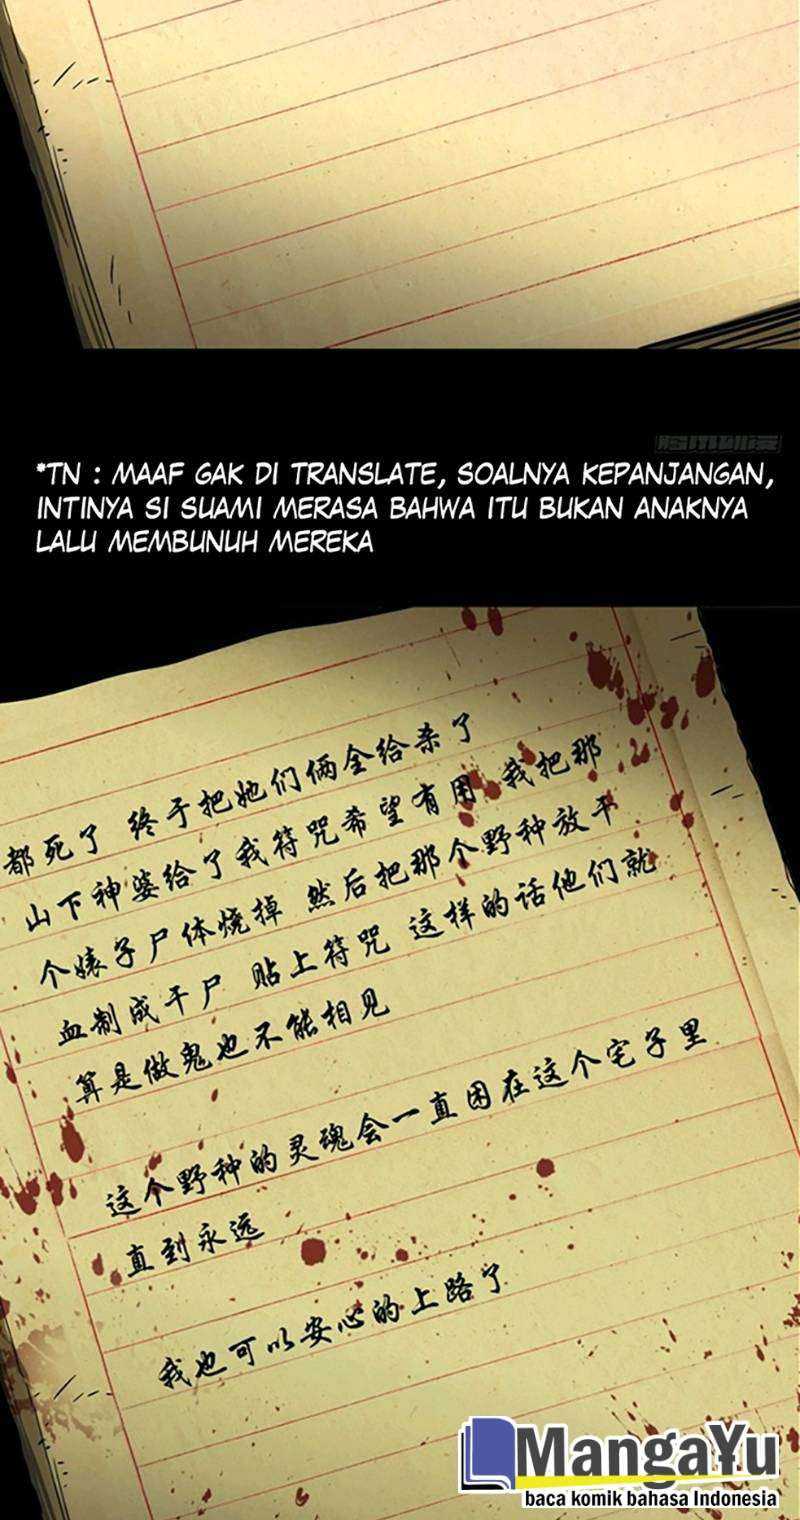 *TN : MAAF GAK DI TRANSLATE, SOALNYA KEPANJANGAN,
INTINYA SI SUAMI MERASA BAHWA ITU BUKAN ANAKNYA
LALU MEMBUNUH MEREKA
都死了 终于把她们俩全给杀了
山下神婆给了我符咒希望有用 我把那
个婊子尸体烧掉 然后把那个野种放干
血制成干尸 贴上符咒 这样的话他们就
算是做鬼也不能相见
这个野种的灵魂会一直困在这个宅子里
直到永远
我也可以安心的上路了
MangaYu
baca komik bahasa Indonesia